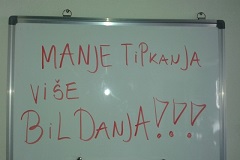 MANJE TiPKANJA
ViŠE
BiLDANJA!!!